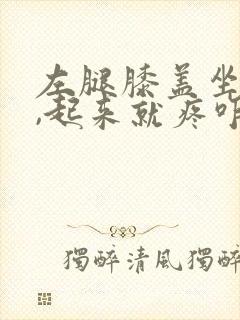 左腿膝盖坐
,起来就疼咋
獨醉清風獨醉